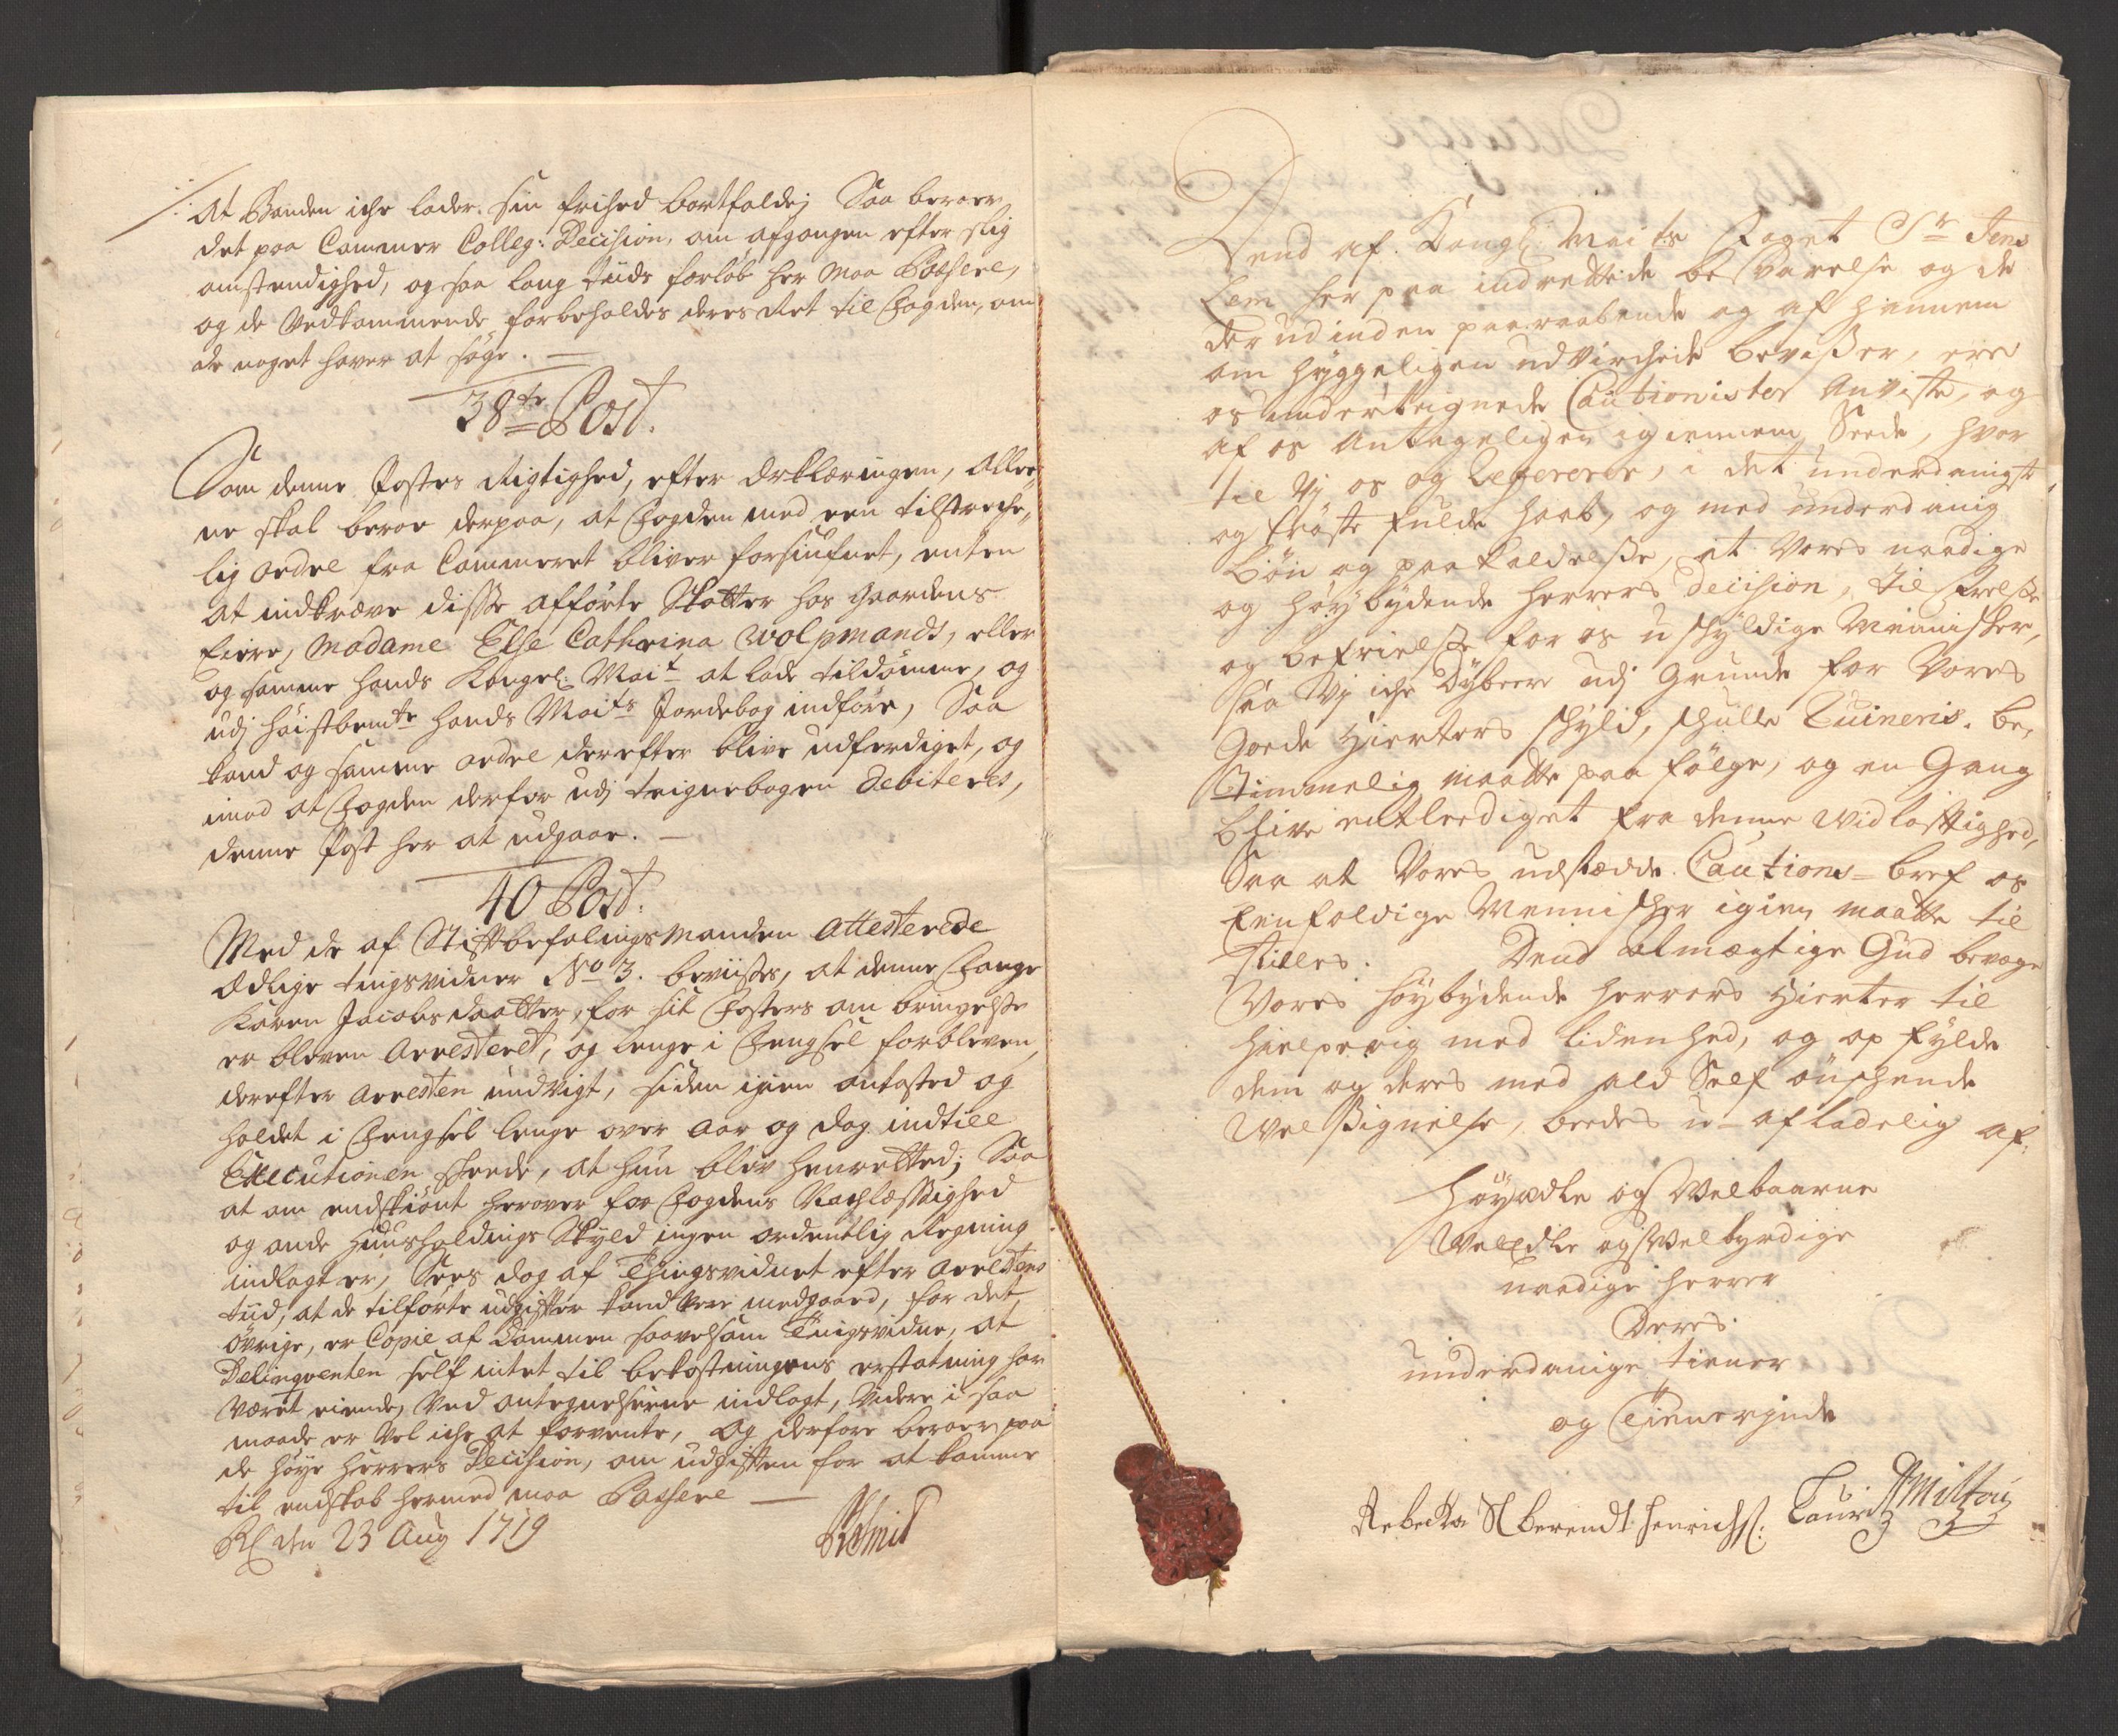 At Bonden iche lader sin frihed bortfalde; Saa beroer
det paa Cammer Colleg: Decision, om afgangen efter slig
omstendighed, og saa lang tiids forløb her maa Passere,
og de Vedkommende forbeholdes deres Ret til Fogden, om
de noget haver at søge.
38te Post.
Som denne Postes Rigtighed, efter Erklæringen, Allee,,
ne skal beroe derpaa, at Fogden med een tilstreche,,
lig ordre fra Cammeret bliver forsiufnet, enten
at indkræve disse afførte Skatter hos Gaardens
Eiere, Madame Else Cathrina Wolpmands, eller
og samme hands Kongel: Mait at lade tildømme, og
udj høistbemte hands Maits Jordebog indføre, Saa
kand og samme ordre derefter blive udferdiget, og
imod at Fogden derfor udj teignebogen debiteres,
denne Post her at udgaae.
40 Post.
Med de af Stiftbefalingsmanden Attesterede
Edlige tingsvidner No 3. beviises, at denne Fange
Karen Jacobsdaatter, for sit Fosters om bringelse
er bleven Arresteret, og lenge i Fengsel forbleven,
derefter Arresten undvigt, siden igien antasted og
holdet i Fengsel lenge over Aar og dag indtill
Executionen skeede, at hun blev henretted; Saa
at om endskiønt herover for Fogdens Nachlæssighed
og onde Huusholdings Skyld ingen ordentlig Regning
indlagt er, Sees dog af Thingsvidnet efter Arrestens
tiid, at de tilførte udgifter kand være medgaaed, for det
øvrige, er Copie af Dommen saavelsom Tingsvidne, at
Delinqventen self intet til bekostningens erstatning har
været eiende, Ved antegnelserne indlagt, Videre i saa
maade er Vel iche at forvente, Og derfore beroer paa
de høye Herrers Decision, om udgiften for at komme
til endskab hermed maa Passere
den 23 Aug 1719
Dend af Kongl: Maits Foget Sr Jens
Lem her paa indrettede besvarelse og de
der ud inden paaraabende og af hannem
om hyggeligen udvirchede beviser, ere
os underteignede Cautionister Anviste, og
af os Antageligen igiennem Seede, hvor
til Vj os og Refererer, i det underdanigste
og trøste fulde haab, og med underdanig
bøn og paakaldelse, at Vores naadige
og høybydende herrers Decision, til frelse
og befrielse for os u skyldige Mennisker,
saa Vj iche dybere udj Grunde for Vores
Goede Hierters skyld, skulle Ruineris. be,
stemmelig maatte paa følge, og en Gang
blive entleediget fra denne Widløftighed,
Saa at Vores udstædde Cautions-bref os
Eenfoldige Mennisker igien maatte til
stilles. Dend almægtige Gud bevæge
Vores høybydende herrers Hierter til
hielperig med lidenhed, og op fylde
dem og deres med ald Self ønskende
Welsignelse, beedes u-afladelig af
Høyædle og Velbaarne
Welædle og Velbyrdige
naadige herrer
Deres
underdanige tiener
og Tienerinde
Rebecka Sl berendt henrichs: Lauritz